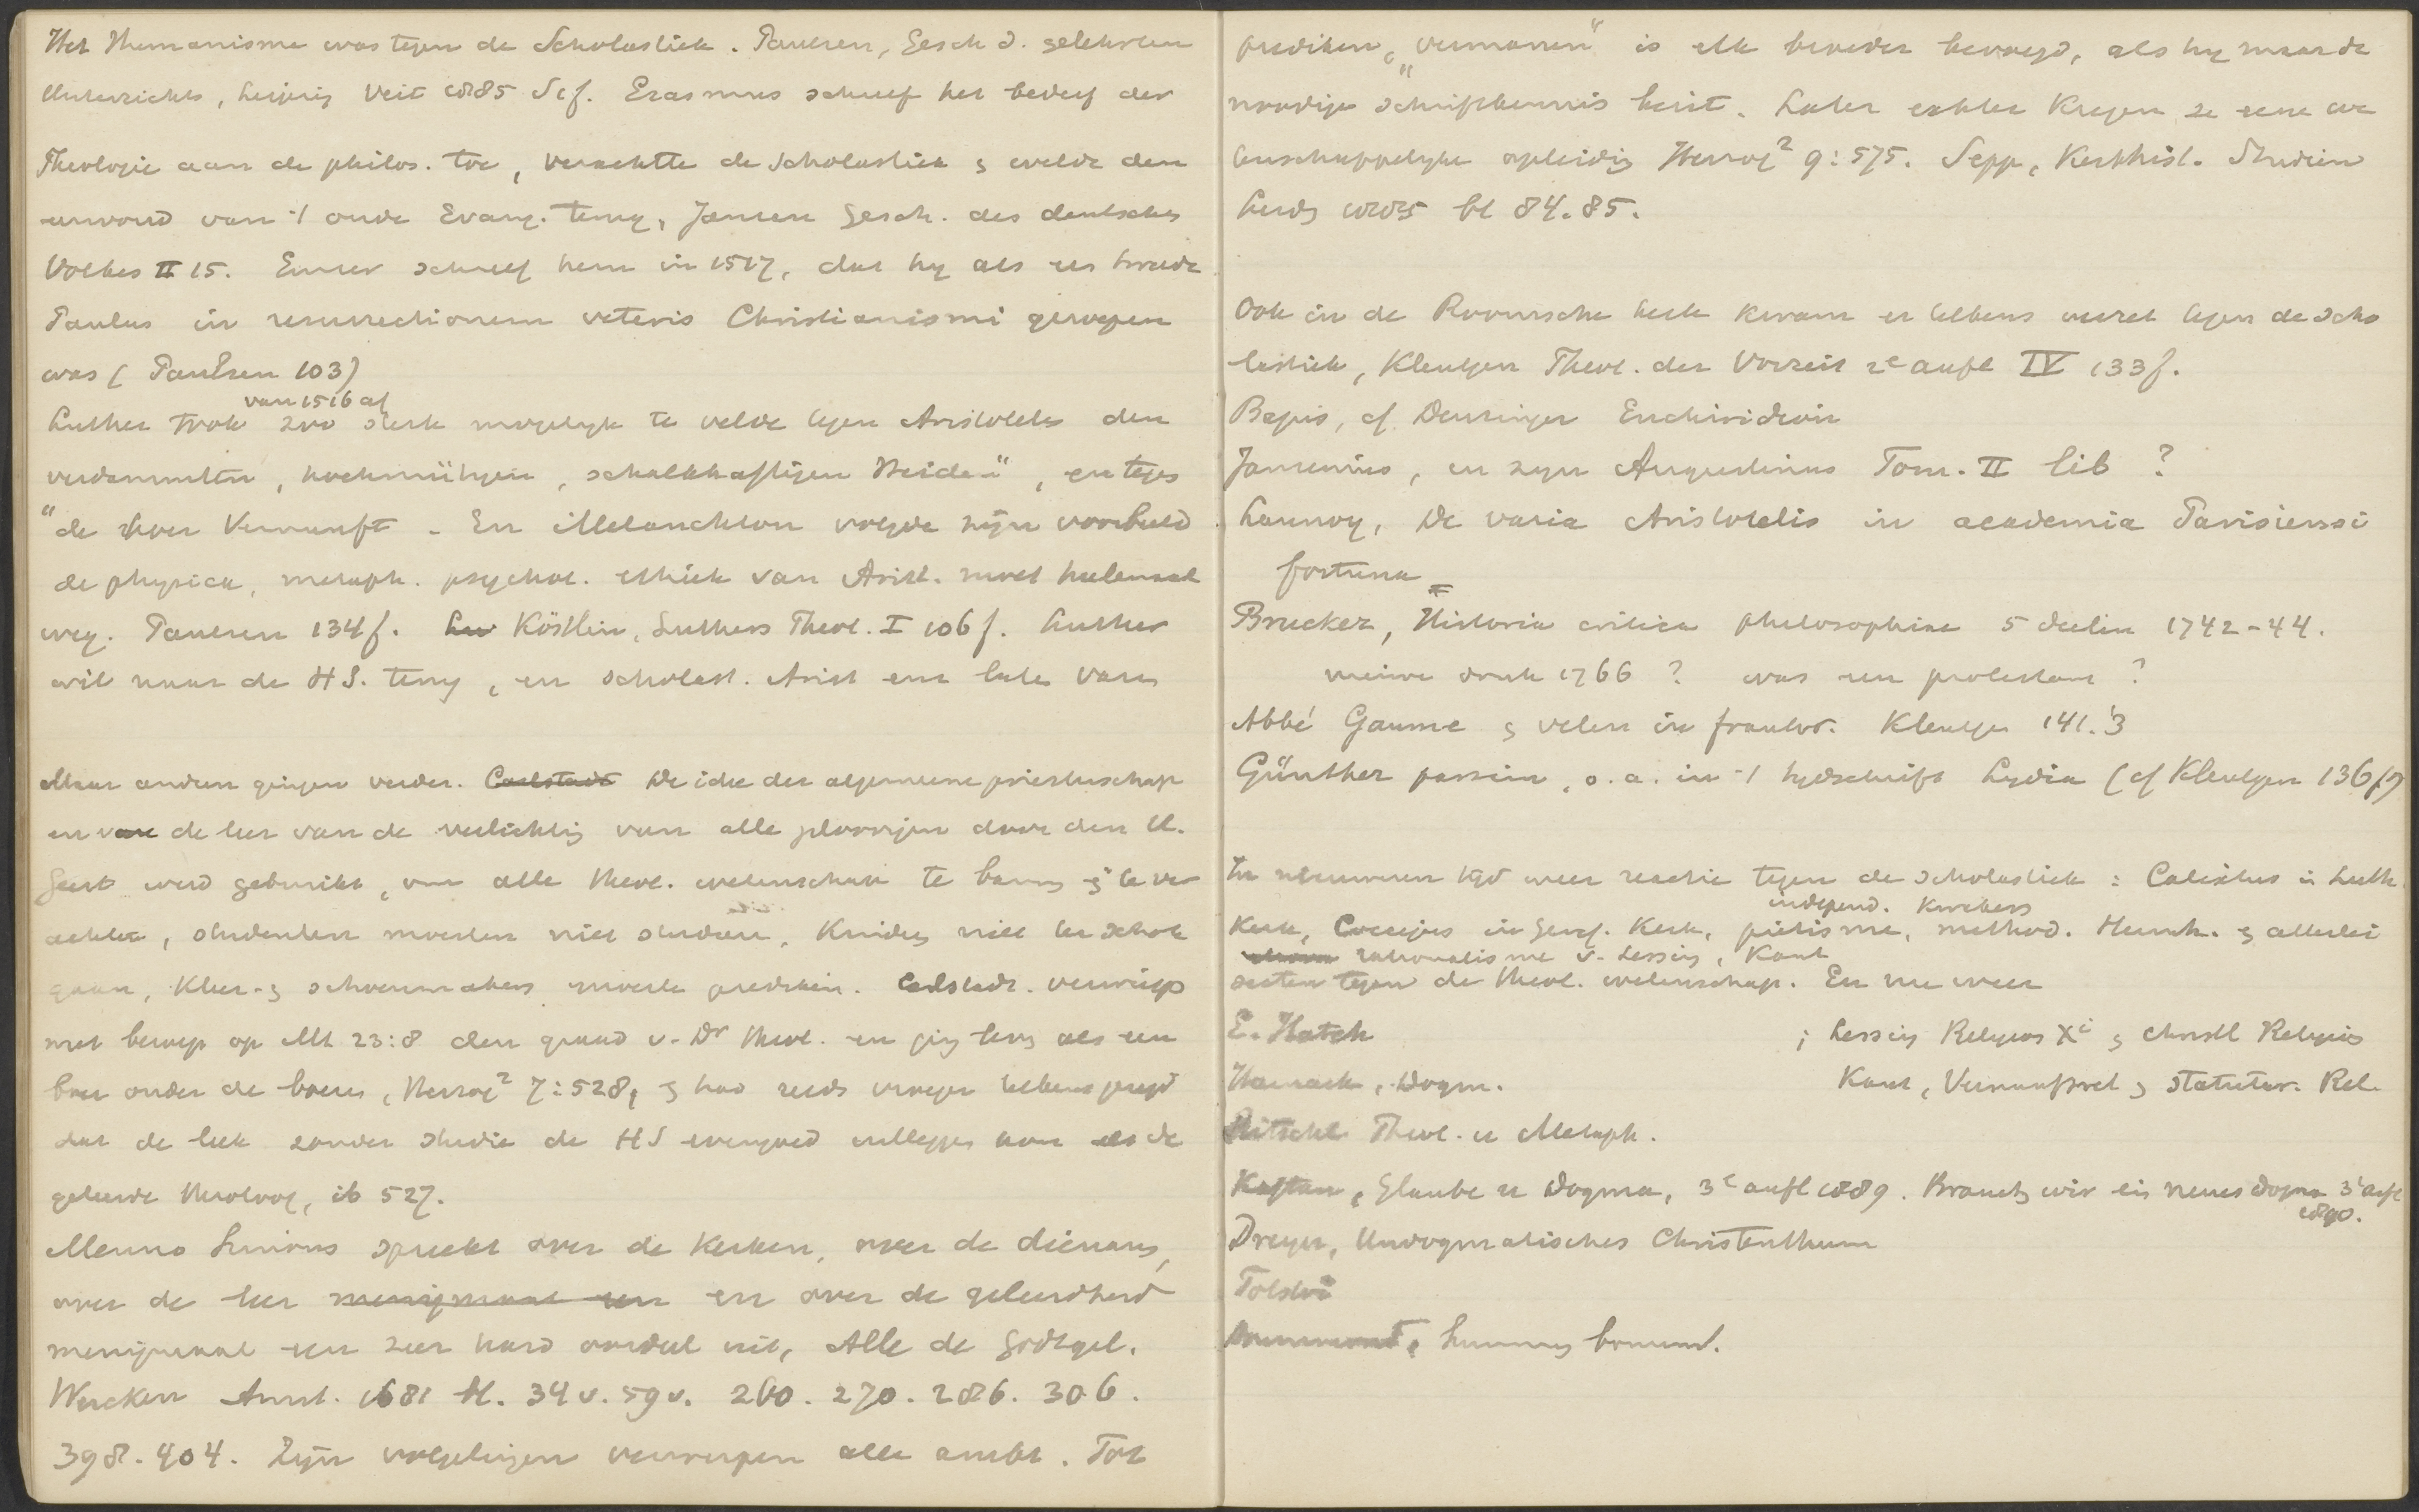 Het Humanisme was tegen de Scholastiek. Paulsen, Gesch d. gelehrten
Unterrichts, Leipzig Veit 1885 S. 1 f. Erasmus schreef het bederf der
Theologie aan de philos. toe, verachtte de scholastiek & wilde den
eenvoud van 't oude Evang. terug, Janssen Gesch. des deutschen
Volkes II 15. Emser schreef hem in 1517, dat hy als een tweede
Paulus in resurrectionem veteris Christianismi geroepen
was (Paulsen 103)
van 1516 af
Luther trok zoo sterk mogelyk te velde tegen Aristoteles den
verdammten, hochmütigen, schalkhaftigen Heiden", en tegen
"de Hoer Vernunft - En Melanchton volgde zijn voorbeeld
de physica, metaph. psychol. ethiek van Arist. moet heelemaal
weg. Paulsen 134 f. Köstlin, Luthers Theol. I 106 f. Luther
wil naar de HS. terug, en scholast. Arist en laten varen
Maar anderen gingen verder. Carlstadt De idee der algemeene priesterschap
en van de leer van de verlichting van alle geloovigen door den H.
Geest werd gebruikt, om alle theol. wetenschap te bannen & te ver
achten, studenten moesten niet studeeren, Kinderen niet ter school
gaan, Kleer- & schoenmakers moesten prediken. Carlstadt. verwierp
met beroep op Mt 23:8 den graad v. Dr theol. en ging leven als een
boer onder de boeren, Herzog² 7:528, & had reeds vroeger telkens gezegd
dat de leek zonder studie de HS evengoed uitleggen kon als de
geleerde theoloog, ib 527.
Menno Simons spreekt over de Kerken, over de dienaars,
over de leer menigmaal een en over de geleerdheid
menigmaal een zeer hard oordeel uit, Alle de Godtgel.
Wercken Amst. 1681 bl. 34 v. 59 v. 260. 270. 286. 306.
398. 404. Zijn volgelingen verwerpen alle ambt. Tot
prediken, "vermanen" is elk broeder bevoegd, als hy maar de
noodige schriftkennis bezit. Later echter kregen ze eene we
tenschappelyke opleiding Herzog² 9:575. Sepp, Kerkhist. Studien
Leiden 1885 bl 84.85.
Ook in de Roomsche kerk kwam er telkens verzet tegen de scho
lastiek, Kleutgen Theol. der Vorzeit 2e aufl IV 133 f.
Bajus, cf. Denzinger Enchiridion
Jansenius, in zyn Augustinus Tom. II lib ?
Launoy, De varia Aristotelis in academia Parisiensi
fortuna
Brucker, Historia critica philosophiae 5 deelen 1742-44.
nieuwe druk 1766 ? was een protestant ?
Abbé Gaume & velen in frankr. Kleutgen 141.3
Günther passim, o.a. in 't tydschrift Lydia (cf Kleutgen 136 f)
In nieuweren tyd weer reactie tegen de scholastiek : Calixtus in Luth.
independ. Kwakers
Kerk, Coccejus in geref. Kerk, pietisme, method. Hernh. & allerlei
rationalisme v. Lessing, Kant
secten tegen de theol. wetenschap. En nu weer
E. Hatch
; Lessing Religion Xi & Christl Religion
Harnack, Dogm.
Kant, Vernunftrel & statutar. Rel.
Ritschl Theol. u Metaph.
Kaftan, Glaube u Dogma, 3e aufl 1889. Brauchen wir ein neues dogma 3e aufl
1890.
Dreyer, Undogmatisches Christenthum
Tolstoi
Drummond,